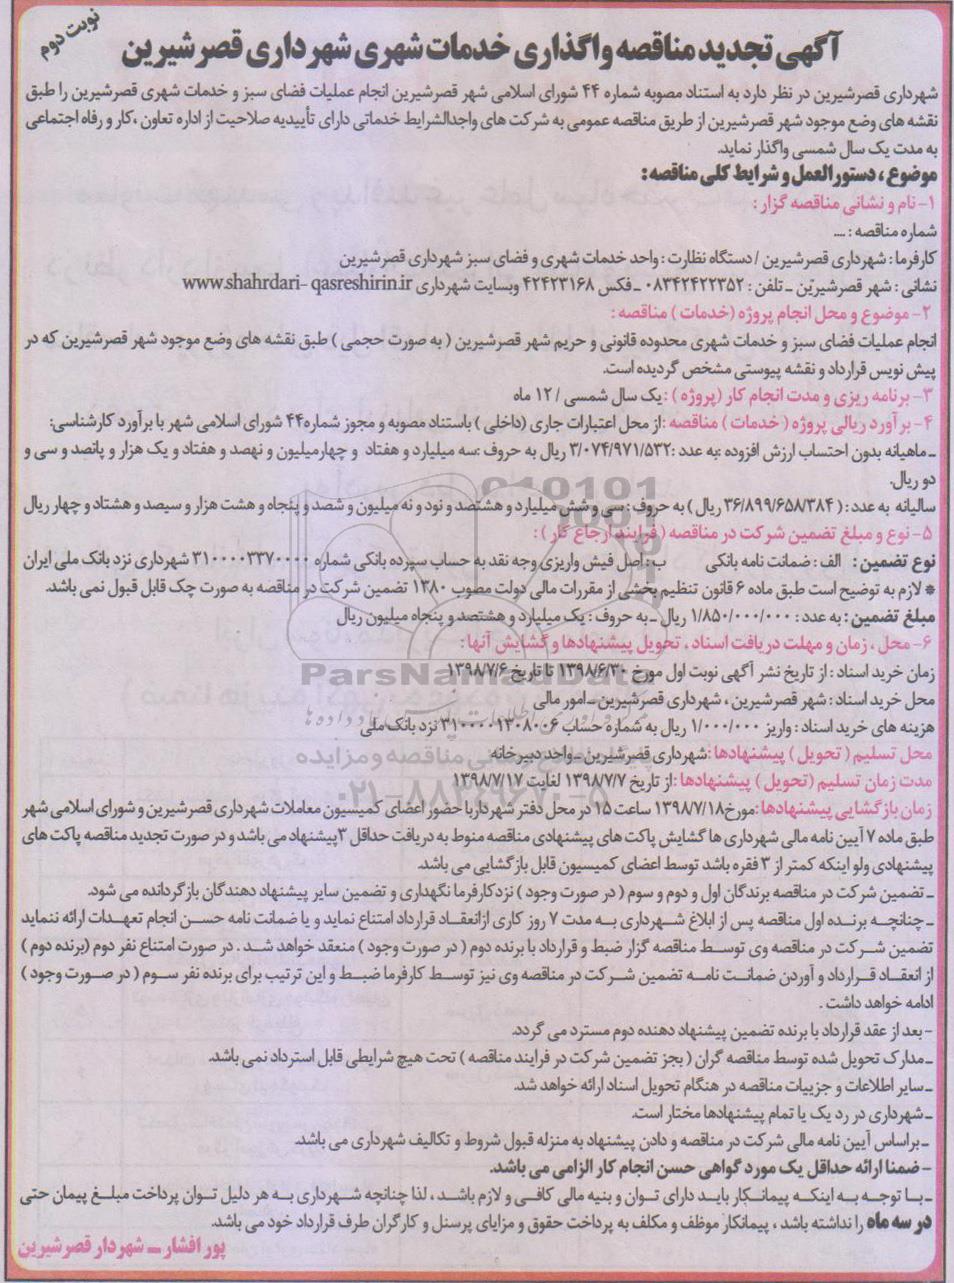 نوبت دوم
آگهی تجدید مناقصه واگذاری خدمات شهری شهرداری قصرشیرین
شهرداری قصرشیرین در نظر دارد به استناد مصوبه شماره ۴۴ شورای اسلامی شهر قصرشیرین انجام عملیات فضای سبز و خدمات شهری قصرشیرین را طبق
نقشه های وضع موجود شهر قصرشیرین از طریق مناقصه عمومی به شرکت های واجدالشرایط خدماتی دارای تأییدیه صلاحیت از اداره تعاون ،کار و رفاه اجتماعی
به مدت یک سال شمسی واگذار نماید.
موضوع ، دستورالعمل و شرایط کلی مناقصه :
۱- نام و نشانی مناقصه گزار :
شماره مناقصه : ...
کارفرما : شهرداری قصرشیرین / دستگاه نظارت : واحد خدمات شهری و فضای سبز شهرداری قصرشیرین
نشانی : شهر قصرشیرین ـ تلفن : ۰۸۳۴۲۴۲۲۳۵۲ ـ فکس ۴۲۴۲۳۱۶۸ وبسایت شهرداری www.shahrdari- qasreshirin.ir
۲- موضوع و محل انجام پروژه (خدمات ) مناقصه :
انجام عملیات فضای سبز و خدمات شهری محدوده قانونی و حریم شهر قصرشیرین ( به صورت حجمی ) طبق نقشه های وضع موجود شهر قصرشیرین که در
پیش نویس قرارداد و نقشه پیوستی مشخص گردیده است.
۳- برنامه ریزی و مدت انجام کار (پروژه ) : یک سال شمسی / ۱۲ ماه
۴- برآورد ریالی پروژه ( خدمات ) مناقصه :از محل اعتبارات جاری (داخلی ) باستناد مصوبه و مجوز شماره۴۴ شورای اسلامی شهر با برآورد کارشناسی:
ـ ماهیانه بدون احتساب ارزش افزوده :به عدد :۳/۰۷۴/۹۷۱/۵۳۲ ریال به حروف :سه میلیارد و هفتاد و چهارمیلیون و نهصد و هفتاد و یک هزار و پانصد و سی و
دو ریال.
سالیانه به عدد : ( ۳۶/۸۹۹/۶۵۸/۳۸۴ ریال ) به حروف : سی و شش میلیارد و هشتصد و نود و نه میلیون و شصد و پنجاه و هشت هزار و سیصد و هشتاد و چهار ریال
۵- نوع و مبلغ تضمین شرکت در مناقصه ( فرایند ارجاع کار ) :
نوع تضمین : الف : ضمانت نامه بانکی ب : اصل فیش واریزی وجه نقد به حساب سپرده بانکی شماره ۳۱۰۰۰۰۳۳۷۰۰۰۰ شهرداری نزد بانک ملی ایران
* لازم به توضیح است طبق ماده ۶ قانون تنظیم بخشی از مقررات مالی دولت مصوب ۱۳۸۰ تضمین شرکت در مناقصه به صورت چک قابل قبول نمی باشد.
مبلغ تضمین : به عدد : ۱/۸۵۰/۰۰۰/۰۰۰ ریال ـ به حروف : یک میلیارد و هشتصد و پنجاه میلیون ریال
۶- محل ، زمان و مهلت دریافت اسناد ، تحویل پیشنهادها و گشایش آنها :
زمان خرید اسناد : از تاریخ نشر آگهی نوبت اول مورخ ۱۳۹۸/۶/۳۰ تا تاریخ ۱۳۹۸/۷/۶
محل خرید اسناد : شهر قصرشیرین ، شهرداری قصرشیرین ـ امور مالی
هزینه های خرید اسناد : واریز ۱/۰۰۰/۰۰۰ ریال به شماره حساب ۳۱۰۰۰۰۱۲۰۸۰۰۶ نزد بانک ملی
محل تسلیم ( تحویل ) پیشنهادها :شهرداری قصرشیرین ـ واحد دبیرخانه
مدت زمان تسلیم (تحویل ) پیشنهادها :از تاریخ ۱۳۹۸/۷/۷ لغایت ۱۳۹۸/۷/۱۷
زمان بازگشایی پیشنهادها :مورخ۱۳۹۸/۷/۱۸ ساعت ۱۵ در محل دفتر شهردار با حضور اعضای کمیسیون معاملات شهرداری قصرشیرین و شورای اسلامی شهر
طبق ماده ۷ آیین نامه مالی شهرداری ها گشایش پاکت های پیشنهادی مناقصه منوط به دریافت حداقل ۳پیشنهاد می باشد و در صورت تجدید مناقصه پاکت های
پیشنهادی ولو اینکه کمتر از ۳ فقره باشد توسط اعضای کمیسیون قابل بازگشایی می باشد.
ـ تضمین شرکت در مناقصه برندگان اول و دوم و سوم ( در صورت وجود ) نزد کارفرما نگهداری و تضمین سایر پیشنهاد دهندگان بازگردانده می شود.
ـ چنانچـه برنـده اول مناقصه پس از ابلاغ شـهرداری بـه مدت ۷ روز کاری ازانعقـاد قرارداد امتناع نماید و یا ضمانت نامه حسـن انجام تعهـدات ارائه ننماید
تضمین شـرکت در مناقصه وی توسـط مناقصه گزار ضبط و قرارداد با برنده دوم ( در صورت وجود ) منعقد خواهد شـد . در صورت امتناع نفر دوم (برنده دوم )
از انعقـاد قـرارداد و آوردن ضمانـت نامـه تضمین شـرکت در مناقصه وی نیز توسـط کارفرما ضبـط و این ترتیب برای برنده نفر سـوم ( در صـورت وجود )
ادامه خواهد داشت .
- بعد از عقد قرارداد با برنده تضمین پیشنهاد دهنده دوم مسترد می گردد.
ـ مدارک تحویل شده توسط مناقصه گران ( بجز تضمین شرکت در فرایند مناقصه ) تحت هیچ شرایطی قابل استرداد نمی باشد.
ـ سایر اطلاعات و جزییات مناقصه در هنگام تحویل اسناد ارائه خواهد شد.
ـ شهرداری در رد یک یا تمام پیشنهادها مختار است.
ـ براساس آیین نامه مالی شرکت در مناقصه و دادن پیشنهاد به منزله قبول شروط و تکالیف شهرداری می باشد.
- ضمنا ارائه حداقل یک مورد گواهی حسن انجام کار الزامی می باشد.
ـ بـا توجـه بـه اینکـه پیمانـکار بایـد دارای تـوان و بنیه مالی کافـی و لازم باشـد ، لذا چنانچه شـهرداری بـه هر دلیل تـوان پرداخت مبلـغ پیمان حتی
در سه ماه را نداشته باشد ، پیمانکار موظف و مکلف به پرداخت حقوق و مزایای پرسنل و کارگران طرف قرارداد خود می باشد.
پور افشار ـ شهردار قصرشیرین
ParsNamadData
۰۲۱-۸۸۳۴۹۶۷۰-۵